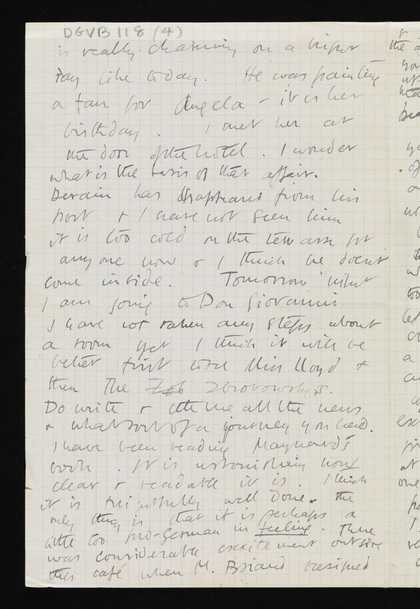 DGVB 118 (4)
is really charming on a bright
day like today. He was painting
a fan for Angela - it is her
birthday. I met her at
the door of the hotel. I wonder
what is the basis of that affair.
Derain has disappeared from his
post & I have not seen him
it is too cold on the terrasse for
anyone now & I think he doesn't
come inside. Tomorrow night
I am going to Don Giovanni
I have not taken any steps about
a room yet I think it will be
better first with Miss Lloyd &
then the Zborowskis.
Do write & tell me all the news
& what sort of a journey you had.
I have been reading Maynard's
book. It is astonishing how
clear & readable it is. I think
it is frightfully well done. The
only thing is that it is perhaps a
little too pro-German in feeling. There
was considerable excitement outside
this café when M. Briand resigned